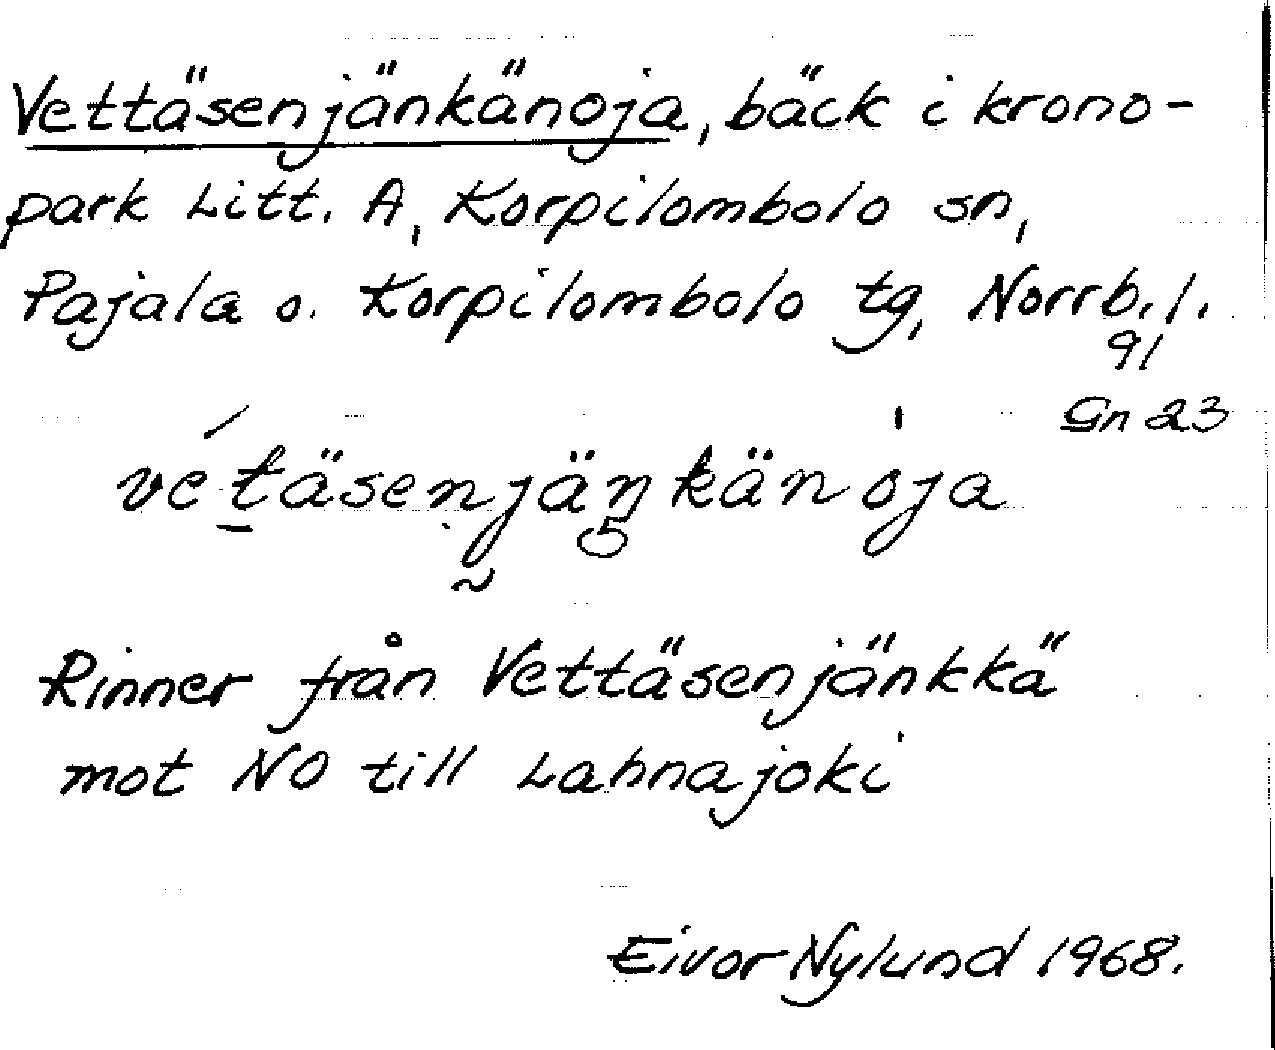 Vettäsenjänkänoja, bäck i krono-
park Litt. A, Korpilombolo sn,
Pajala o. Korpilombolo tg, Norrb. l.
91
Gn 23
Rinner från Vettäsenjänkkä
mot NO till Lahnajoki
Eivor Nylund 1968.